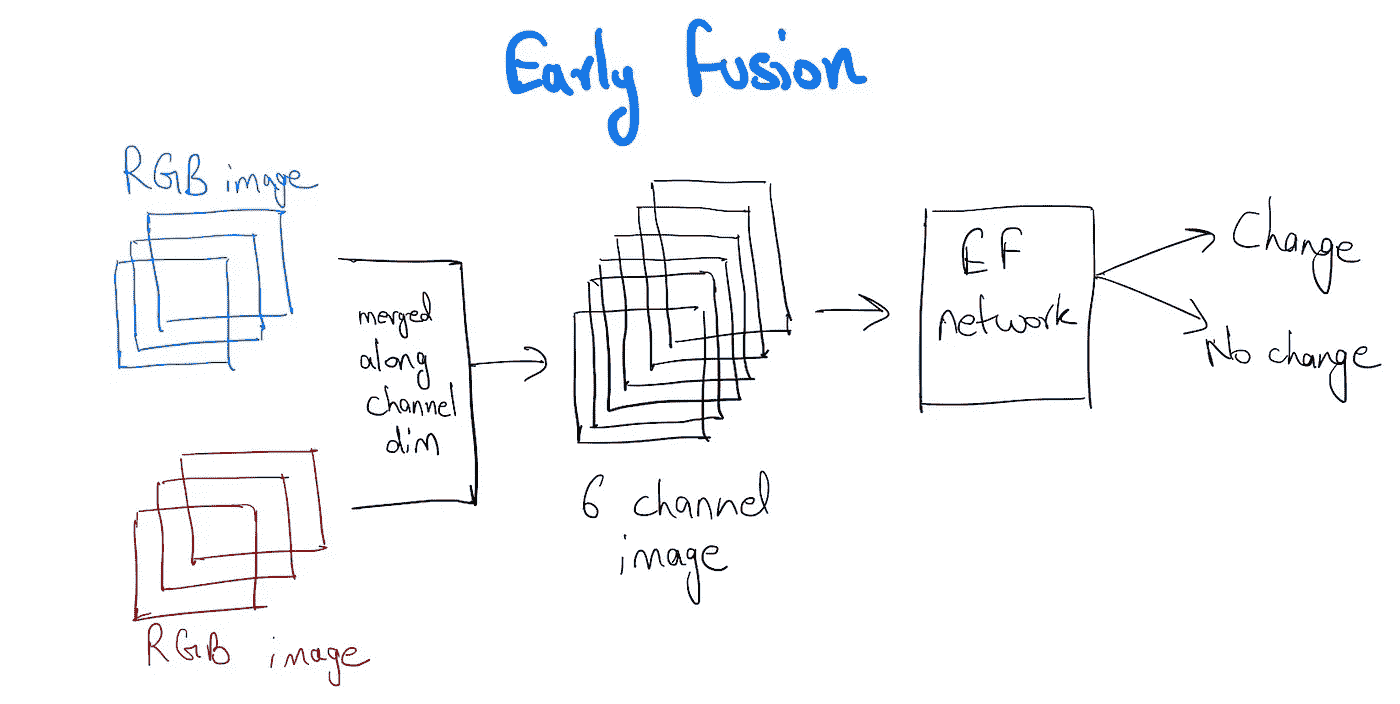 Early Fusion
RGB image
merged
along
channel
dim
RGB image
6 channel
image
EF
network
Change
No change